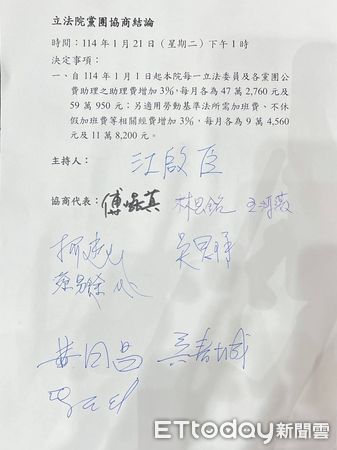 立法院黨團協商結論
時間：114 年 1 月 21 日（星期二）下午 1 時
決定事項：
一、自 114 年 1 月 1 日起本院每一立法委員及各黨團公
費助理之助理費增加 3%，每月各為 47 萬 2,760 元及
59 萬 950 元；另適用勞動基準法所需加班費、不休
假加班費等相關經費增加 3%，每月各為 9 萬 4,560
元及 11 萬 8,200 元。
主持人：江啟臣
協商代表：傅崐萁 林思銘 王鴻薇
柯建銘 吳思瑤
黃國昌 吳春城
ETtoday新聞雲